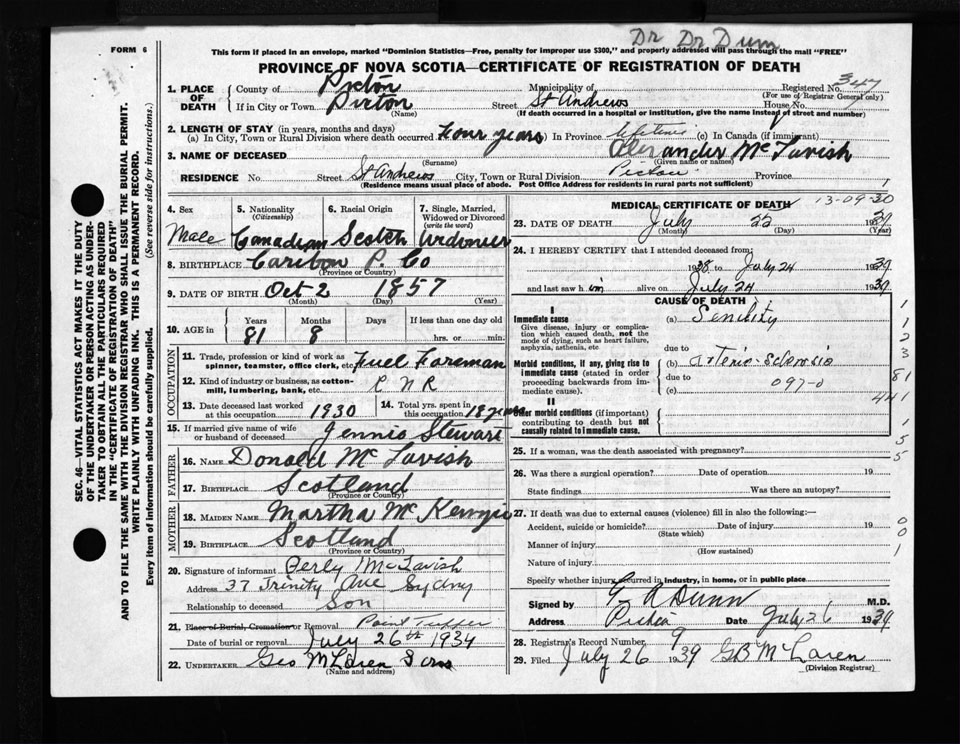 Dr Dr Dunn
FORM 6
This form if placed in an envelope, marked "Dominion Statistics—Free, penalty for improper use $300," and properly addressed will pass through the mail "FREE"
PROVINCE OF NOVA SCOTIA—CERTIFICATE OF REGISTRATION OF DEATH
1. PLACE OF DEATH
County of Pictou Municipality of Registered No.
(For use of Registrar General only)
If in City or Town Pictou Street St Andrews House No.
(Name) (If death occurred in a hospital or institution, give the name instead of street and number)
2. LENGTH OF STAY (in years, months and days)
(a) In City, Town or Rural Division where death occurred Four years In Province Lifetime (c) In Canada (if immigrant)
3. NAME OF DECEASED Alexander McTavish
(Surname) (Given name or names)
RESIDENCE No. Street St Andrews City, Town or Rural Division Pictou Province
(Residence means usual place of abode. Post Office Address for residents in rural parts not sufficient)
4. Sex
Male
5. Nationality
(Citizenship)
Canadian
6. Racial Origin
Scotch
7. Single, Married,
Widowed or Divorced
(write the word)
Widower
8. BIRTHPLACE Caribou P. Co
(Province or Country)
9. DATE OF BIRTH Oct 2 1857
(Month) (Day) (Year)
10. AGE in Years Months Days If less than one day old
81 8 hrs. or min.
OCCUPATION
11. Trade, profession or kind of work as
spinner, teamster, office clerk, etc. Fuel Foreman
12. Kind of industry or business, as cotton-
mill, lumbering, bank, etc. C N R
13. Date deceased last worked
at this occupation 1930
14. Total yrs. spent in
this occupation 18 years
15. If married give name of wife
or husband of deceased Jennie Stewart
FATHER
16. NAME Donald McTavish
17. BIRTHPLACE Scotland
(Province or Country)
MOTHER
18. MAIDEN NAME Martha McKenzie
19. BIRTHPLACE Scotland
(Province or Country)
20. Signature of informant Perly McTavish
Address 37 Trinity Ave Sydny
Relationship to deceased Son
21. Place of Burial, Cremation or Removal Point Tupper
Date of burial or removal July 26th 1934
22. UNDERTAKER Geo McLaren Sons
(Name and address)
MEDICAL CERTIFICATE OF DEATH 13-09-30
23. DATE OF DEATH July 25 1939
(Month) (Day) (Year)
24. I HEREBY CERTIFY that I attended deceased from:
1938 to July 24 1939
and last saw him alive on July 24 1939
CAUSE OF DEATH
I
Immediate cause
Give disease, injury or complica-
tion which caused death, not the
mode of dying, such as heart failure,
asphyxia, asthenia, etc.
(a) Senility
due to
Morbid conditions, if any, giving rise to
immediate cause (stated in order
proceeding backwards from im-
mediate cause).
(b) Arterio-Sclerosis
due to 097-0
(c)
II
Other morbid conditions (if important)
contributing to death but not
causally related to immediate cause.
25. If a woman, was the death associated with pregnancy?
26. Was there a surgical operation? Date of operation 19
State findings Was there an autopsy?
27. If death was due to external causes (violence) fill in also the following:—
Accident, suicide or homicide? Date of injury 19
(State which)
Manner of injury
(How sustained)
Nature of injury
Specify whether injury occurred in industry, in home, or in public place
Signed by G A Dunn M.D.
Address Pictou Date July 26 1939
28. Registrar's Record Number 9
29. Filed July 26 1939 GB McLaren
(Division Registrar)
1
1
1
2
3
81
441
1
5
5
0
0
1
SEC. 46—VITAL STATISTICS ACT MAKES IT THE DUTY
OF THE UNDERTAKER OR PERSON ACTING AS UNDER-
TAKER TO OBTAIN ALL THE PARTICULARS REQUIRED
IN THE "CERTIFICATE OF REGISTRATION OF DEATH"
AND TO FILE THE SAME WITH THE DIVISION REGISTRAR WHO SHALL ISSUE THE BURIAL PERMIT.
WRITE PLAINLY WITH UNFADING INK. THIS IS A PERMANENT RECORD.
Every item of information should be carefully supplied. (See reverse side for instructions.)